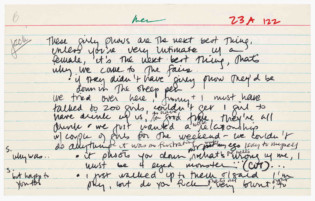 her
23A 122
Jack
These girly shows are the next best thing,
unless you're very intimate w/ a
female, it's the next best thing, that's
why we came to the fair
if they didn't have girly shows they'd be
down in the sheep pen
we tried over here, Jimmy + I must have
talked to 200 girls, couldn't get 1 girl to
have drink w/ us, they're all
drunk + we just wanted a relationship
w/ couple of girls for the weekend - we couldn't
do anything it was so frustrating
S. why was.. • it shoots you down, what's wrong w/ me, I
must be a 4 eyed monster (CUT)...
S. but happy to • I just walked up to them + said I'm
you too, but do you fuck, very blunt, to